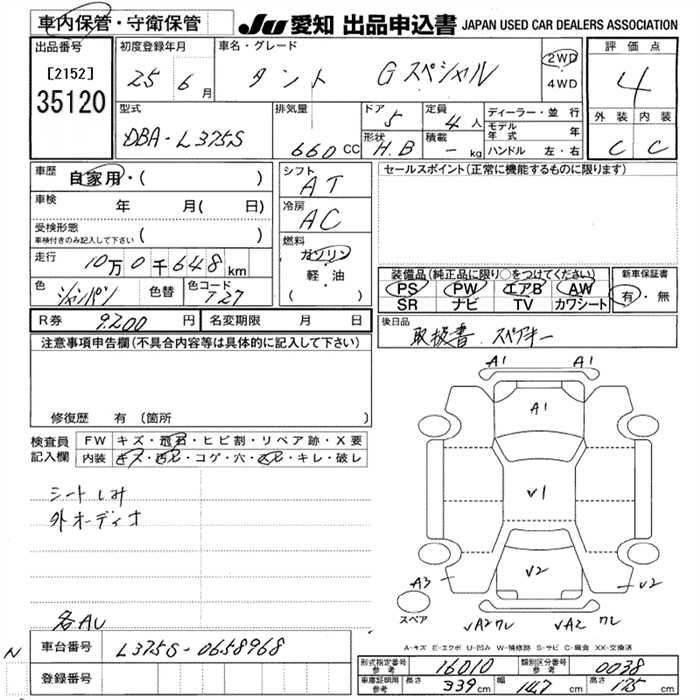 車内保管・守衛保管
JU 愛知 出品申込書 JAPAN USED CAR DEALERS ASSOCIATION
出品番号
[2152]
35120
初度登録年月
25年 6月
車名・グレード
タント Gスペシャル
2WD
・
4WD
評価点
4
外装 内装
C C
型式
DBA-L375S
排気量
660 CC
ドア
5
形状
H.B
定員
4人
積載
- kg
ディーラー・並行
モデル年式 年
ハンドル 左・右
車歴
自家用・( )
車検
年 月( 日)
受検形態
車検付きのみ記入して下さい
( )
走行
10万0千648km
色
シャンパン
色替
色コード
T27
シフト
AT
冷房
AC
燃料
ガソリン
軽・油
( )
セールスポイント(正常に機能するものに限ります)
装備品(純正品に限り○をつけてください)
PS PW エアB AW
SR ナビ TV カワシート
新車保証書
有・無
R券 9200円
名変期限 月 日
後日品
取扱書、スペアキー
注意事項申告欄(不具合内容等は具体的に記入して下さい)
修復歴 有(箇所 )
検査員記入欄
FW キズ・飛石・ヒビ割・リペア跡・X要
内装 キズ・汚レ・コゲ・穴・スレ・キレ・破レ
シートしみ
外オーディオ
各AU
A1 A1
A1
V1
V2
A3
V2
スペア
VA2 ワレ VA2 ワレ
A-キズ E-エクボ U-凹み W-補修跡 S-サビ C-腐食 XX-交換済
N
車台番号 L375S-0658968
登録番号
形式指定番号 参考 16010
類別区分番号 参考 0038
車庫証明用 参考 長さ 339cm 幅 147cm 高さ 175cm